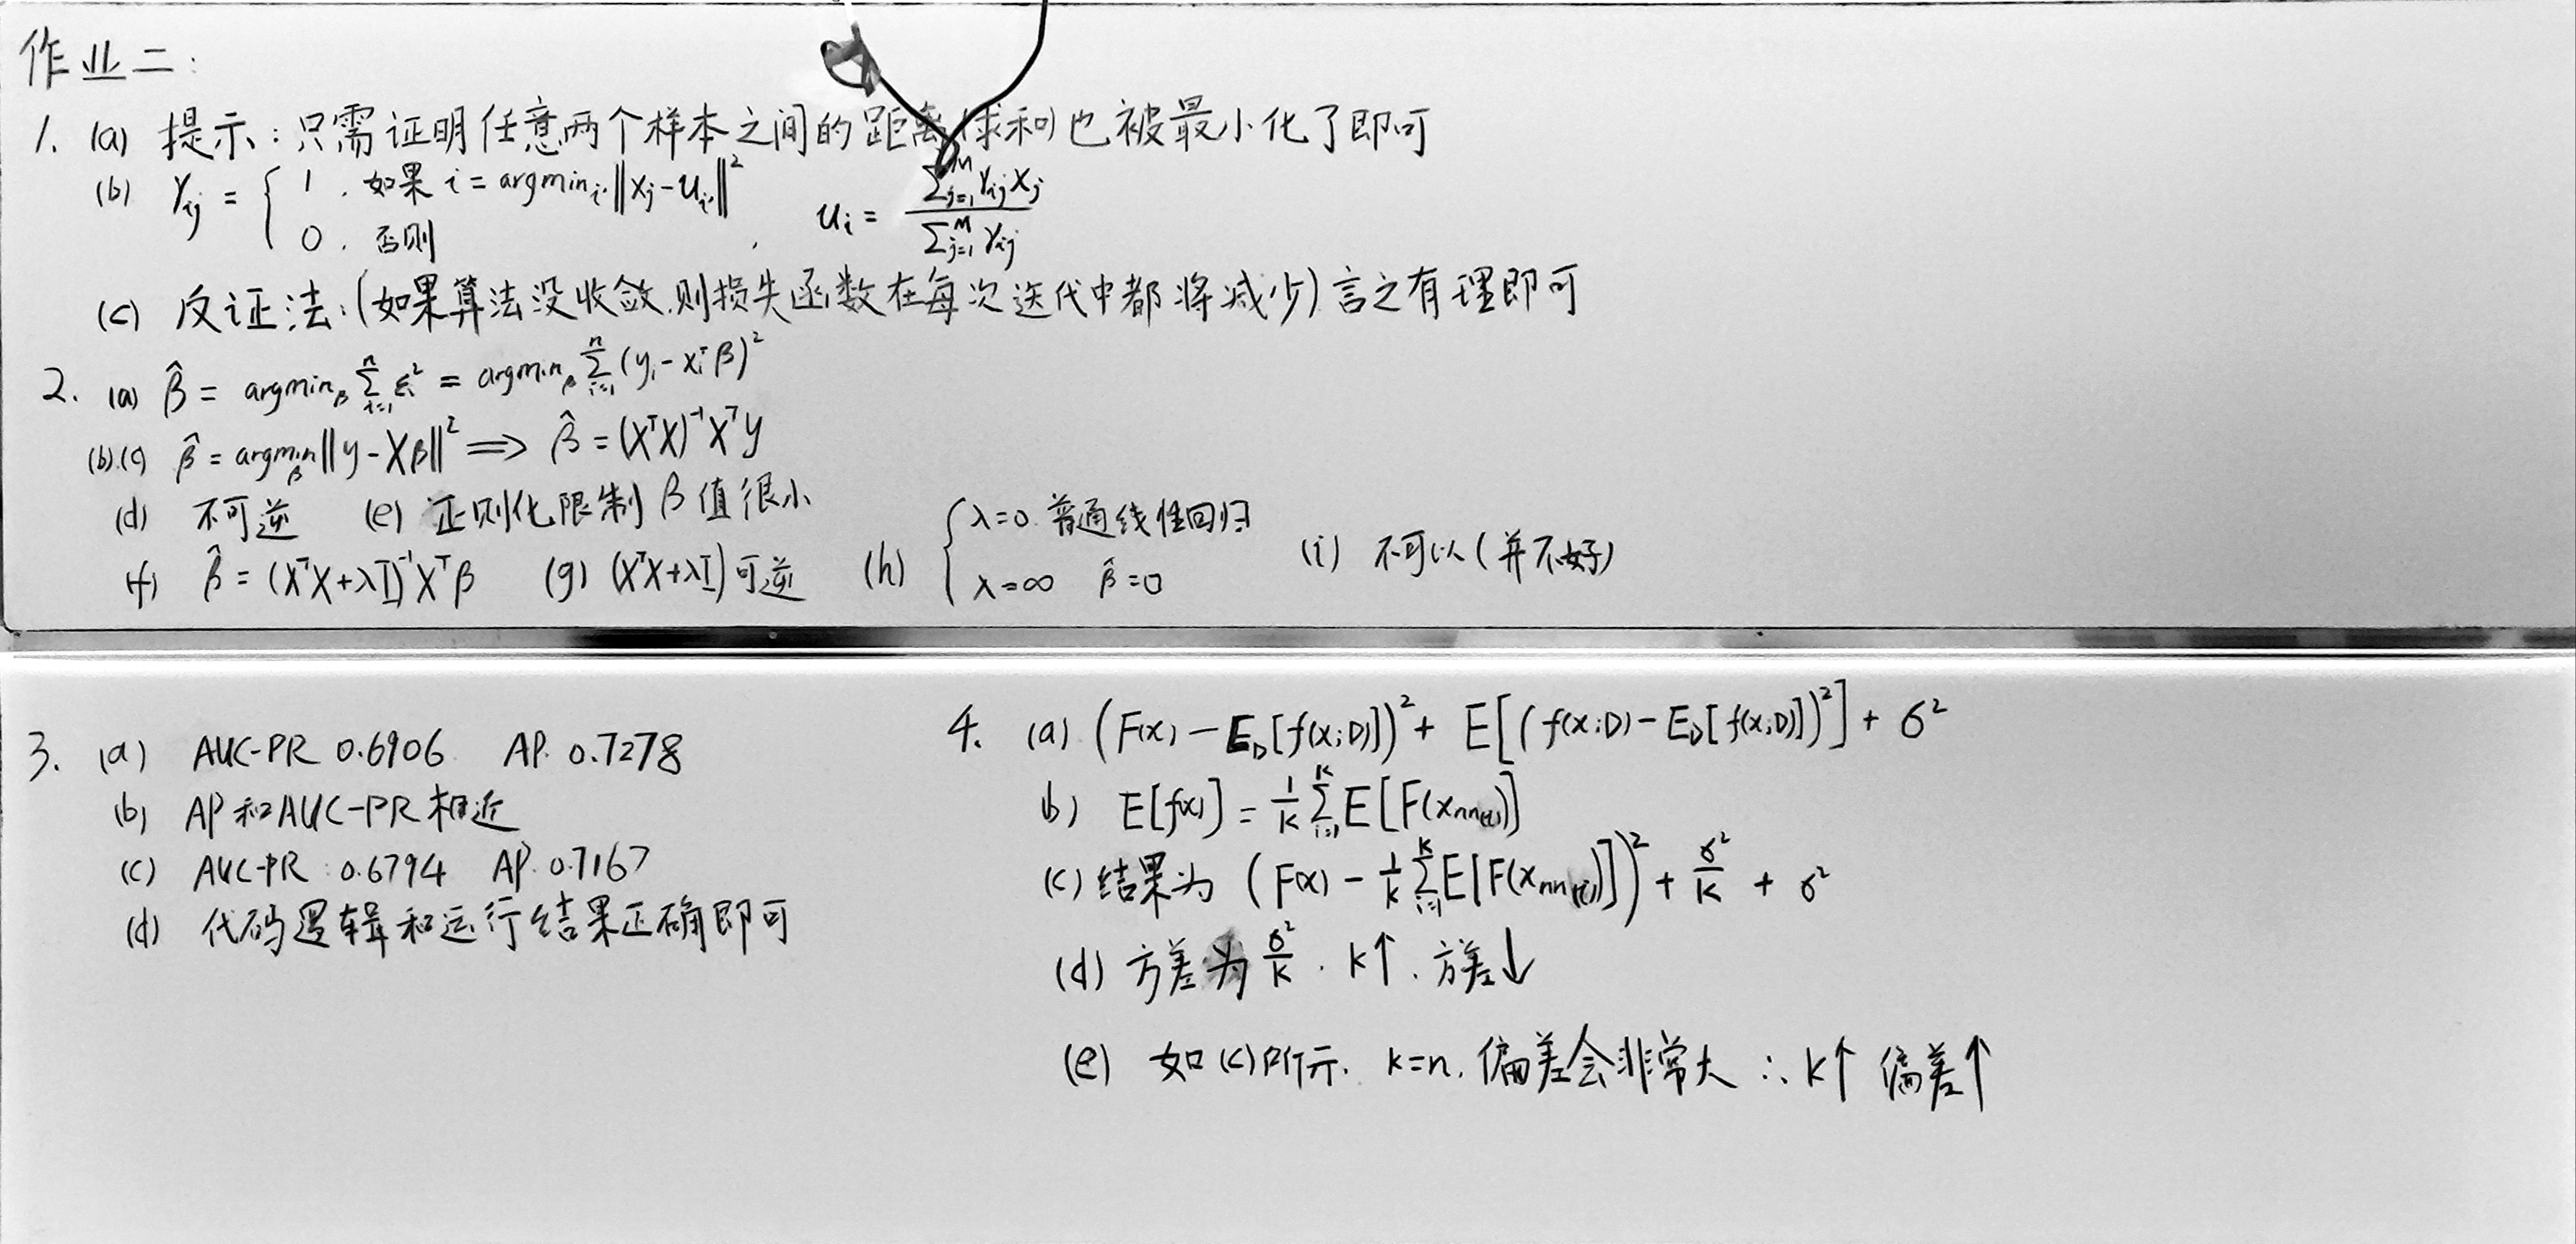 作业二:
1. (a) 提示: 只需证明任意两个样本之间的距离(求和)也被最小化了即可
(b) γij = { 1, 如果 i = argmin i' ||xj - ui'||²
0, 否则 , ui = ∑j=1^M γij xj / ∑j=1^M γij
(c) 反证法: (如果算法没收敛,则损失函数在每次迭代中都将减少) 言之有理即可
2. (a) β̂ = argminβ ∑i=1^n εi² = argminβ ∑i=1^n (yi - xiᵀβ)²
(b).(c) β̂ = argminβ ||y - Xβ||² ⟹ β̂ = (XᵀX)⁻¹Xᵀy
(d) 不可逆 (e) 正则化限制 β 值很小
(f) β̂ = (XᵀX+λI)⁻¹Xᵀβ (g) (XᵀX+λI) 可逆 (h) { λ=0 普通线性回归
λ=∞ β̂=0 (i) 不可以 (并不好)
3. (a) AUC-PR 0.6906 AP. 0.7278
(b) AP和AUC-PR相近
(c) AUC-PR: 0.6794 AP. 0.7167
(d) 代码逻辑和运行结果正确即可
4. (a) (F(x) - E_D[f(x;D)])² + E[(f(x;D) - E_D[f(x;D)])²] + σ²
b) E[f(x)] = 1/K ∑i=1^K E[F(xnn(i))]
(c) 结果为 (F(x) - 1/K ∑i=1^K E[F(xnn(i))])² + σ²/K + σ²
(d) 方差为 σ²/K. K↑. 方差↓
(e) 如(c)所示. K=n. 偏差会非常大 ∴ K↑ 偏差↑